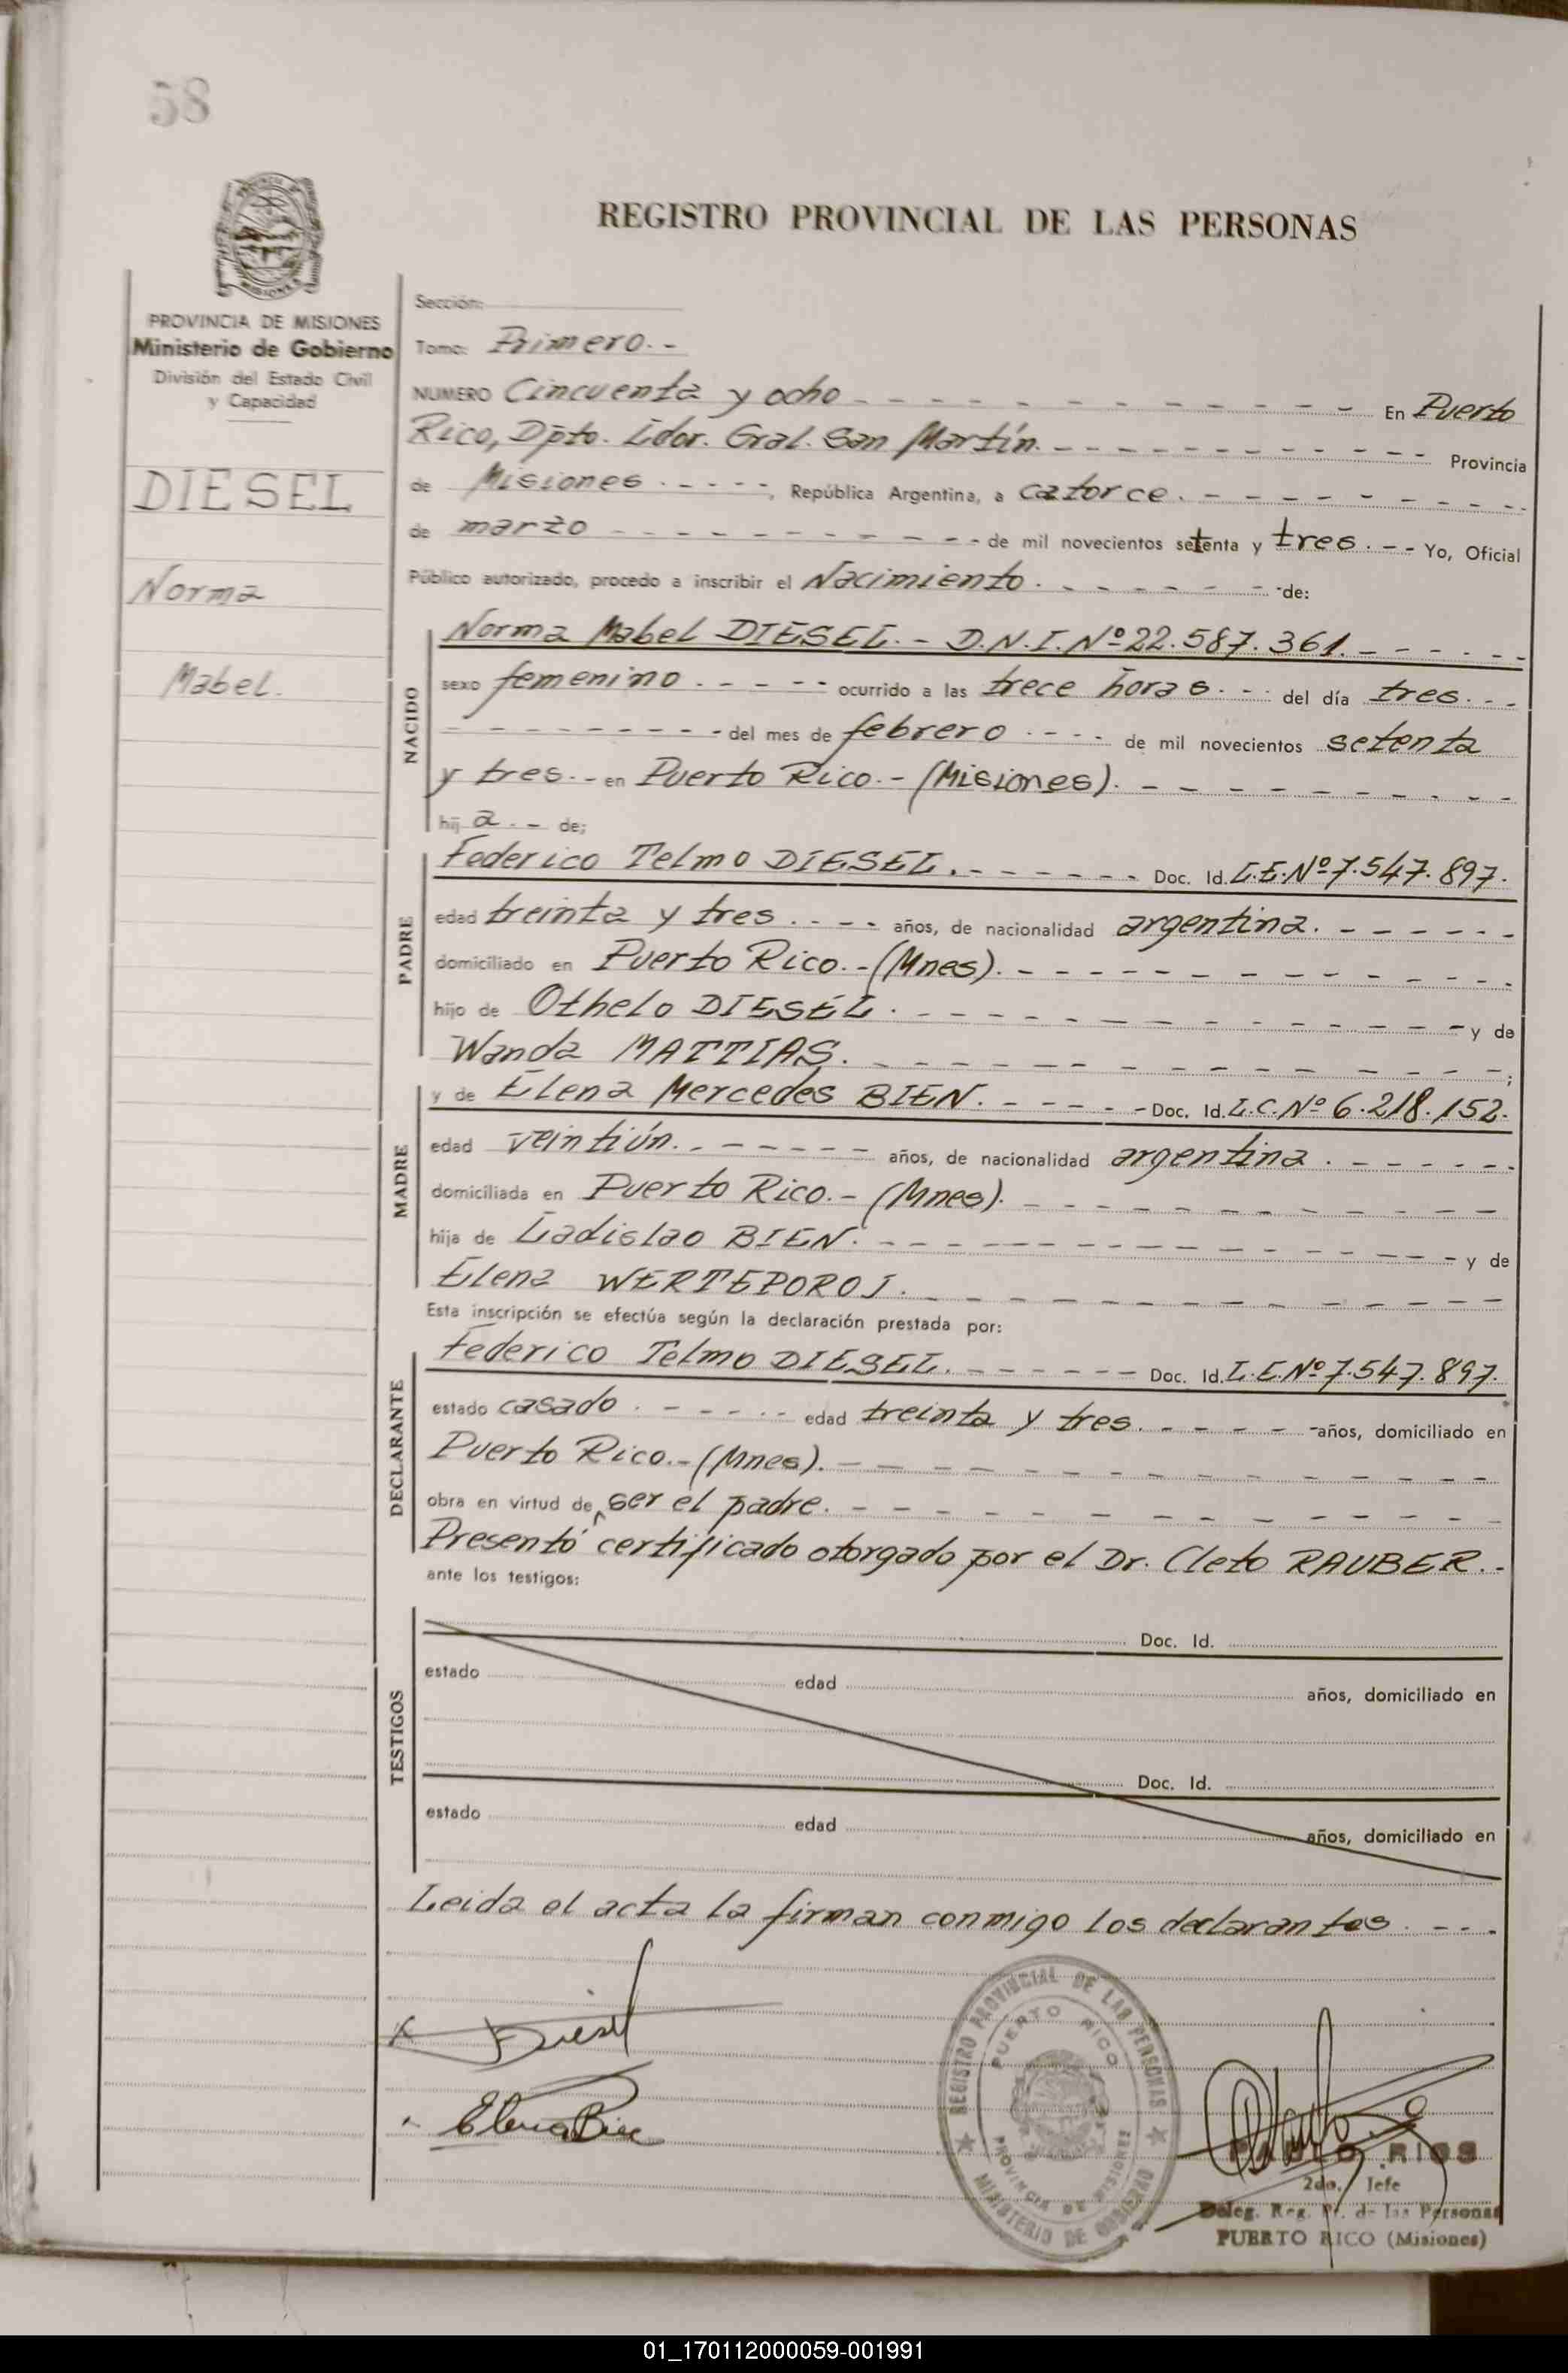 58
REGISTRO PROVINCIAL DE LAS PERSONAS
PROVINCIA DE MISIONES
Ministerio de Gobierno
División del Estado Civil
y Capacidad
DIESEL
Norma
Mabel.
Sección:
Tomo: Primero.-
NUMERO Cincuenta y ocho - - - - - - - - - - - En Puerto
Rico, Dpto. Ldor. Gral. San Martín. - - - - - - - - - - - - Provincia
de Misiones. - - - -, República Argentina, a catorce. - - - - - - - - -
de marzo - - - - - - - - - - - de mil novecientos setenta y tres. - - Yo, Oficial
Público autorizado, procedo a inscribir el Nacimiento. - - - - - - - de:
NACIDO
Norma Mabel DIESEL. - D.N.I. Nº 22.587.361. - - - - - -
sexo femenino. - - - - ocurrido a las trece horas. - - del día tres. - -
- - - - - - - - - del mes de febrero. - - - de mil novecientos setenta
y tres. - - en Puerto Rico. - (Misiones). - - - - - - - - - -
hij a. - de;
PADRE
Federico Telmo DIESEL. - - - - - - Doc. Id. L.E. Nº 7.547.897.
edad treinta y tres. - - - años, de nacionalidad argentina. - - - - - -
domiciliado en Puerto Rico. - (Mnes). - - - - - - - - - - - -
hijo de Othelo DIESEL. - - - - - - - - - - - - - y de
Wanda MATTIAS. - - - - - - - - - - - - - ;
MADRE
y de Elena Mercedes BIEN. - - - - - Doc. Id. L.C. Nº 6.218.152.
edad veintiún. - - - - - - - años, de nacionalidad argentina. - - - - - -
domiciliada en Puerto Rico. - (Mnes). - - - - - - - - - - -
hija de Ladislao BIEN. - - - - - - - - - - - - - - y de
Elena WERTEPOROJ. - - - - - - - - - - - -
Esta inscripción se efectúa según la declaración prestada por:
DECLARANTE
Federico Telmo DIESEL. - - - - - - Doc. Id. L.E. Nº 7.547.897.
estado casado. - - - - - edad treinta y tres. - - - - - años, domiciliado en
Puerto Rico. - (Mnes). - - - - - - - - - - - - - -
obra en virtud de ser el padre. - - - - - - - - - - - -
Presentó certificado otorgado por el Dr. Cleto RAUBER. -
ante los testigos:
TESTIGOS
Doc. Id.
estado edad años, domiciliado en
Doc. Id.
estado edad años, domiciliado en
Leida el acta la firman conmigo los declarantes. - - -
x Diesel
Elena Bien
REGISTRO PROVINCIAL DE LAS PERSONAS
PUERTO RICO
PROVINCIA DE MISIONES
MINISTERIO DE GOBIERNO
RIOS
2do. Jefe
Deleg. Reg. Pr. de las Personas
PUERTO RICO (Misiones)
01_170112000059-001991